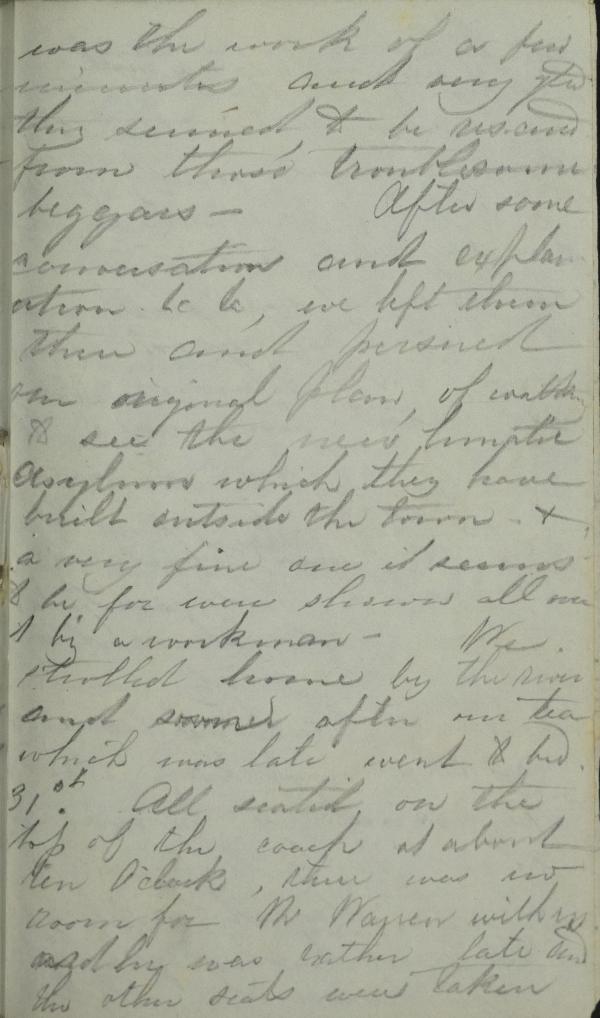 was the work of a few
minutes and very glad
they seemed to be rescued
from those troublesome
beggars - After some
conversation and explan
ation &c &c, we left them
then and persued
our original plan, of walk
to see the new lunatic
Asylum which they have
built outside the town - &
a very fine one it seems
to be for were shown all over
it by a workman - We
strolled home by the river
and soon after our tea
which was late went to bed.
31st. All seated on the
top of the coach at about
ten O'clock, there was no
room for Mr Warren with us
and he was rather late and
the other seats were taken